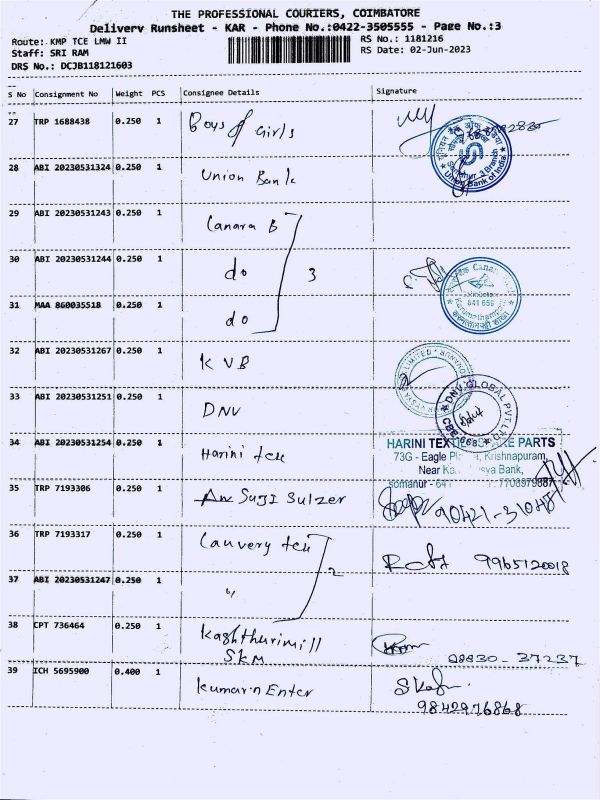 THE PROFESSIONAL COURIERS, COIMBATORE
Delivery Runsheet - KAR - Phone No.:0422-3505555 - Page No.:3
Route: KMP TCE LMW II
RS No.: 1181216
Staff: SRI RAM
RS Date: 02-Jun-2023
DRS No.: DCJB118121603
S No Consignment No Weight PCS Consignee Details Signature
27 TRP 1688438 0.250 1 Boys & Girls
28 ABI 20230531324 0.250 1 Union Bank
Union Bank of India
29 ABI 20230531243 0.250 1 Canara B
30 ABI 20230531244 0.250 1 do 3
641 659
31 MAA 860035518 0.250 1 do
32 ABI 20230531267 0.250 1 KVB
33 ABI 20230531251 0.250 1 DNV
DNV GLOBAL PVT LTD
CBE
34 ABI 20230531254 0.250 1 Harini tex
HARINI TEX PARTS
73G - Eagle Krishnapuram,
Near Bank,
somanur - 7708979887
35 TRP 7193306 0.250 1 Suji Sulzer
90421-31048
36 TRP 7193317 0.250 1 Cauvery tex 2
9965120018
37 ABI 20230531247 0.250 1 "
38 CPT 736464 0.250 1 Kashthurimill
SKM
98830-37237
39 ICH 5695900 0.400 1 Kumaran Enter
9842976868